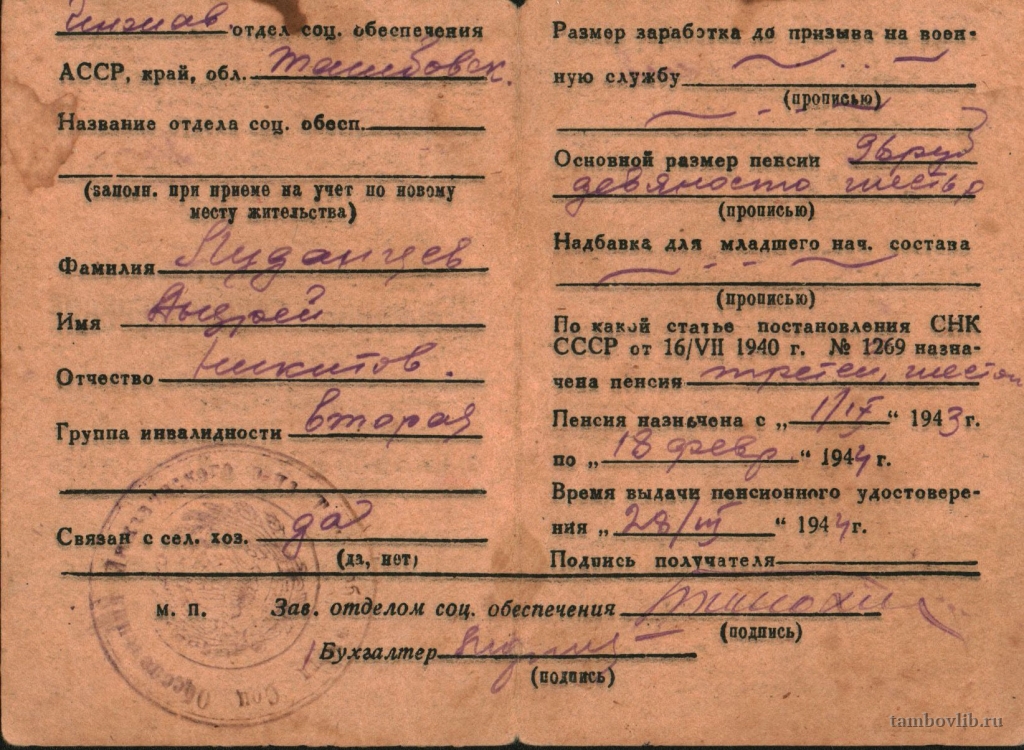 отдел соц. обеспечения
АССР, край, обл. Тамбовск.
Название отдела соц. обесп.
(заполн. при приеме на учет по новому
месту жительства)
Фамилия
Имя Андрей
Отчество Никитов.
Группа инвалидности вторая
Связан с сел. хоз. да
(да, нет)
Размер заработка до призыва на воен-
ную службу
(прописью)
Основной размер пенсии 96 руб
девяносто шесть р
(прописью)
Надбавка для младшего нач. состава
(прописью)
По какой статье постановления СНК
СССР от 16/VII 1940 г. № 1269 назна-
чена пенсия третей, шестой
Пенсия назначена с „ 1/IX “ 1943 г.
по „ 18 февр “ 1944 г.
Время выдачи пенсионного удостовере-
ния „ 28/III “ 1944 г.
Подпись получателя
м. п. Зав. отделом соц. обеспечения
(подпись)
Бухгалтер
(подпись)
tambovlib.ru